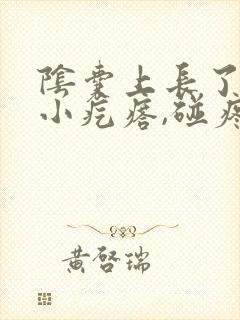 陰囊上長了
小疙瘩,碰疼
黃啓瑞